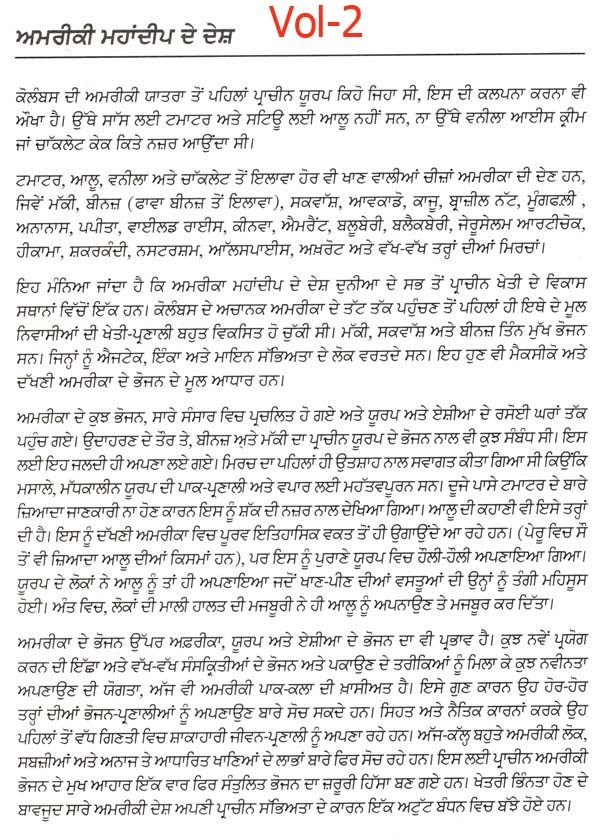 Vol-2
ਅਮਰੀਕੀ ਮਹਾਂਦੀਪ ਦੇ ਦੇਸ਼
ਕੋਲੰਬਸ ਦੀ ਅਮਰੀਕੀ ਯਾਤਰਾ ਤੋਂ ਪਹਿਲਾਂ ਪ੍ਰਾਚੀਨ ਯੂਰਪ ਕਿਹੋ ਜਿਹਾ ਸੀ, ਇਸ ਦੀ ਕਲਪਨਾ ਕਰਨਾ ਵੀ
ਔਖਾ ਹੈ। ਉੱਥੇ ਸਾੱਸ ਲਈ ਟਮਾਟਰ ਅਤੇ ਸਟਿਊ ਲਈ ਆਲੂ ਨਹੀਂ ਸਨ, ਨਾ ਉੱਥੇ ਵਨੀਲਾ ਆਈਸ ਕ੍ਰੀਮ
ਜਾਂ ਚਾੱਕਲੇਟ ਕੇਕ ਕਿਤੇ ਨਜ਼ਰ ਆਉਂਦਾ ਸੀ।
ਟਮਾਟਰ, ਆਲੂ, ਵਨੀਲਾ ਅਤੇ ਚਾੱਕਲੇਟ ਤੋਂ ਇਲਾਵਾ ਹੋਰ ਵੀ ਖਾਣ ਵਾਲੀਆਂ ਚੀਜ਼ਾਂ ਅਮਰੀਕਾ ਦੀ ਦੇਣ ਹਨ,
ਜਿਵੇਂ ਮੱਕੀ, ਬੀਨਜ਼ (ਫਾਵਾ ਬੀਨਜ਼ ਤੋਂ ਇਲਾਵਾ), ਸਕਵਾੱਸ਼, ਆਵਕਾਡੋ, ਕਾਜੂ, ਬ੍ਰਾਜ਼ੀਲ ਨੱਟ, ਮੂੰਗਫਲੀ ,
ਅਨਾਨਾਸ, ਪਪੀਤਾ, ਵਾਈਲਡ ਰਾਈਸ, ਕੀਨਵਾ, ਐਮਰੈਂਟ, ਬਲੂਬੇਰੀ, ਬਲੈਕਬੇਰੀ, ਜੇਰੂਸੇਲਮ ਆਰਟੀਚੋਕ,
ਹੀਕਾਮਾ, ਸ਼ਕਰਕੰਦੀ, ਨਸਟਰਸ਼ਮ, ਆੱਲਸਪਾਈਸ, ਅਖ਼ਰੋਟ ਅਤੇ ਵੱਖ-ਵੱਖ ਤਰ੍ਹਾਂ ਦੀਆਂ ਮਿਰਚਾਂ।
ਇਹ ਮੰਨਿਆ ਜਾਂਦਾ ਹੈ ਕਿ ਅਮਰੀਕਾ ਮਹਾਂਦੀਪ ਦੇ ਦੇਸ਼ ਦੁਨੀਆ ਦੇ ਸਭ ਤੋਂ ਪ੍ਰਾਚੀਨ ਖੇਤੀ ਦੇ ਵਿਕਾਸ
ਸਥਾਨਾਂ ਵਿੱਚੋਂ ਇੱਕ ਹਨ। ਕੋਲੰਬਸ ਦੇ ਅਚਾਨਕ ਅਮਰੀਕਾ ਦੇ ਤੱਟ ਤੱਕ ਪਹੁੰਚਣ ਤੋਂ ਪਹਿਲਾਂ ਹੀ ਇਥੇ ਦੇ ਮੂਲ
ਨਿਵਾਸੀਆਂ ਦੀ ਖੇਤੀ-ਪ੍ਰਣਾਲੀ ਬਹੁਤ ਵਿਕਸਿਤ ਹੋ ਚੁੱਕੀ ਸੀ। ਮੱਕੀ, ਸਕਵਾੱਸ਼ ਅਤੇ ਬੀਨਜ਼ ਤਿੰਨ ਮੁੱਖ ਭੋਜਨ
ਸਨ। ਜਿਨ੍ਹਾਂ ਨੂੰ ਐਜਟੇਕ, ਇੰਕਾ ਅਤੇ ਮਾਇਨ ਸੱਭਿਅਤਾ ਦੇ ਲੋਕ ਵਰਤਦੇ ਸਨ। ਇਹ ਹੁਣ ਵੀ ਮੈਕਸੀਕੋ ਅਤੇ
ਦੱਖਣੀ ਅਮਰੀਕਾ ਦੇ ਭੋਜਨ ਦੇ ਮੂਲ ਆਧਾਰ ਹਨ।
ਅਮਰੀਕਾ ਦੇ ਕੁਝ ਭੋਜਨ, ਸਾਰੇ ਸੰਸਾਰ ਵਿਚ ਪ੍ਰਚਲਿਤ ਹੋ ਗਏ ਅਤੇ ਯੂਰਪ ਅਤੇ ਏਸ਼ੀਆ ਦੇ ਰਸੋਈ ਘਰਾਂ ਤੱਕ
ਪਹੁੰਚ ਗਏ। ਉਦਾਹਰਣ ਦੇ ਤੌਰ ਤੇ, ਬੀਨਜ਼ ਅਤੇ ਮੱਕੀ ਦਾ ਪ੍ਰਾਚੀਨ ਯੂਰਪ ਦੇ ਭੋਜਨ ਨਾਲ ਵੀ ਕੁਝ ਸੰਬੰਧ ਸੀ। ਇਸ
ਲਈ ਇਹ ਜਲਦੀ ਹੀ ਅਪਣਾ ਲਏ ਗਏ। ਮਿਰਚ ਦਾ ਪਹਿਲਾਂ ਹੀ ਉਤਸ਼ਾਹ ਨਾਲ ਸਵਾਗਤ ਕੀਤਾ ਗਿਆ ਸੀ ਕਿਉਂਕਿ
ਮਸਾਲੇ, ਮੱਧਕਾਲੀਨ ਯੂਰਪ ਦੀ ਪਾਕ-ਪ੍ਰਣਾਲੀ ਅਤੇ ਵਪਾਰ ਲਈ ਮਹੱਤਵਪੂਰਨ ਸਨ। ਦੂਜੇ ਪਾਸੇ ਟਮਾਟਰ ਦੇ ਬਾਰੇ
ਜ਼ਿਆਦਾ ਜਾਣਕਾਰੀ ਨਾ ਹੋਣ ਕਾਰਨ ਇਸ ਨੂੰ ਸ਼ੱਕ ਦੀ ਨਜ਼ਰ ਨਾਲ ਦੇਖਿਆ ਗਿਆ। ਆਲੂ ਦੀ ਕਹਾਣੀ ਵੀ ਇਸੇ ਤਰ੍ਹਾਂ
ਦੀ ਹੈ। ਇਸ ਨੂੰ ਦੱਖਣੀ ਅਮਰੀਕਾ ਵਿਚ ਪੂਰਵ ਇਤਿਹਾਸਿਕ ਵਕਤ ਤੋਂ ਹੀ ਉਗਾਉਂਦੇ ਆ ਰਹੇ ਹਨ। (ਪੇਰੂ ਵਿਚ ਸੌ
ਤੋਂ ਵੀ ਜ਼ਿਆਦਾ ਆਲੂ ਦੀਆਂ ਕਿਸਮਾਂ ਹਨ), ਪਰ ਇਸ ਨੂੰ ਪੁਰਾਣੇ ਯੂਰਪ ਵਿਚ ਹੌਲੀ-ਹੌਲੀ ਅਪਣਾਇਆ ਗਿਆ।
ਯੂਰਪ ਦੇ ਲੋਕਾਂ ਨੇ ਆਲੂ ਨੂੰ ਤਾਂ ਹੀ ਅਪਣਾਇਆ ਜਦੋਂ ਖਾਣ-ਪੀਣ ਦੀਆਂ ਵਸਤੂਆਂ ਦੀ ਉਨ੍ਹਾਂ ਨੂੰ ਤੰਗੀ ਮਹਿਸੂਸ
ਹੋਈ। ਅੰਤ ਵਿਚ, ਲੋਕਾਂ ਦੀ ਮਾਲੀ ਹਾਲਤ ਦੀ ਮਜਬੂਰੀ ਨੇ ਹੀ ਆਲੂ ਨੂੰ ਅਪਨਾਉਣ ਤੇ ਮਜਬੂਰ ਕਰ ਦਿੱਤਾ।
ਅਮਰੀਕਾ ਦੇ ਭੋਜਨ ਉੱਪਰ ਅਫ਼ਰੀਕਾ, ਯੂਰਪ ਅਤੇ ਏਸ਼ੀਆ ਦੇ ਭੋਜਨ ਦਾ ਵੀ ਪ੍ਰਭਾਵ ਹੈ। ਕੁਝ ਨਵੇਂ ਪ੍ਰਯੋਗ
ਕਰਨ ਦੀ ਇੱਛਾ ਅਤੇ ਵੱਖ-ਵੱਖ ਸੰਸਕ੍ਰਿਤੀਆਂ ਦੇ ਭੋਜਨ ਅਤੇ ਪਕਾਉਣ ਦੇ ਤਰੀਕਿਆਂ ਨੂੰ ਮਿਲਾ ਕੇ ਕੁਝ ਨਵੀਨਤਾ
ਅਪਣਾਉਣ ਦੀ ਯੋਗਤਾ, ਅੱਜ ਵੀ ਅਮਰੀਕੀ ਪਾਕ-ਕਲਾ ਦੀ ਖ਼ਾਸੀਅਤ ਹੈ। ਇਸੇ ਗੁਣ ਕਾਰਨ ਉਹ ਹੋਰ-ਹੋਰ
ਤਰ੍ਹਾਂ ਦੀਆਂ ਭੋਜਨ-ਪ੍ਰਣਾਲੀਆਂ ਨੂੰ ਅਪਣਾਉਣ ਬਾਰੇ ਸੋਚ ਸਕਦੇ ਹਨ। ਸਿਹਤ ਅਤੇ ਨੈਤਿਕ ਕਾਰਨਾਂ ਕਰਕੇ ਉਹ
ਪਹਿਲਾਂ ਤੋਂ ਵੱਧ ਗਿਣਤੀ ਵਿਚ ਸ਼ਾਕਾਹਾਰੀ ਜੀਵਨ-ਪ੍ਰਣਾਲੀ ਨੂੰ ਅਪਣਾ ਰਹੇ ਹਨ। ਅੱਜ-ਕੱਲ੍ਹ ਬਹੁਤੇ ਅਮਰੀਕੀ ਲੋਕ,
ਸਬਜ਼ੀਆਂ ਅਤੇ ਅਨਾਜ ਤੇ ਆਧਾਰਿਤ ਖਾਣਿਆਂ ਦੇ ਲਾਭਾਂ ਬਾਰੇ ਫਿਰ ਸੋਚ ਰਹੇ ਹਨ। ਇਸ ਲਈ ਪ੍ਰਾਚੀਨ ਅਮਰੀਕੀ
ਭੋਜਨ ਦੇ ਮੁਖ ਆਹਾਰ ਇੱਕ ਵਾਰ ਫਿਰ ਸੰਤੁਲਿਤ ਭੋਜਨ ਦਾ ਜ਼ਰੂਰੀ ਹਿੱਸਾ ਬਣ ਗਏ ਹਨ। ਖੇਤਰੀ ਭਿੰਨਤਾ ਹੋਣ ਦੇ
ਬਾਵਜੂਦ ਸਾਰੇ ਅਮਰੀਕੀ ਦੇਸ਼ ਅਪਣੀ ਪ੍ਰਾਚੀਨ ਸੱਭਿਅਤਾ ਦੇ ਕਾਰਨ ਇੱਕ ਅਟੁੱਟ ਬੰਧਨ ਵਿਚ ਬੱਝੇ ਹੋਏ ਹਨ।